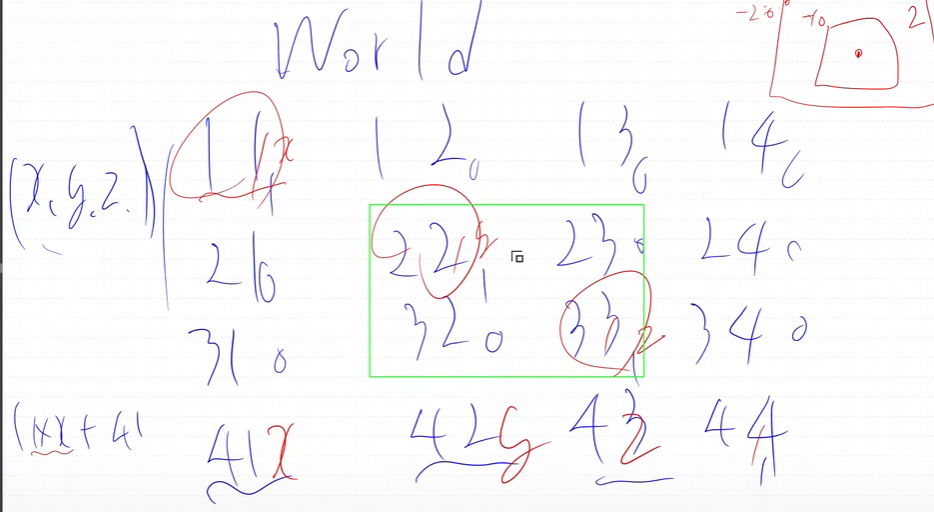 World
-20 -10 2
(x, y, z.) 11x 1 12 0 13 0 14 0
21 0 22y 1 23 0 24 0
31 0 32 0 33z 1 34 0
(1xx + 41 41x 42y 43z 44 1